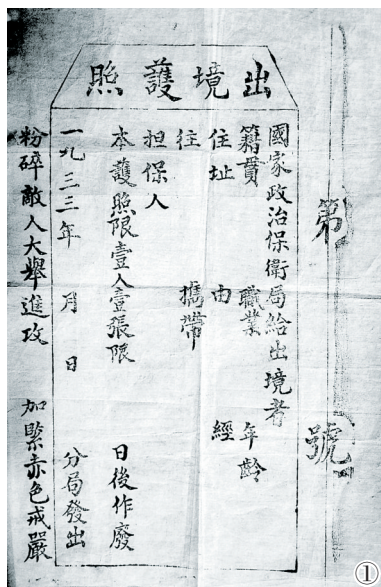 第　號
出境護照
國家政治保衛局給出境者
籍貫　職業　年齡
住址　由　經
往　攜帶
担保人
本護照限壹人壹張限　日後作廢
一九三三年　月　日　分局發出
粉碎敵人大舉進攻　加緊赤色戒嚴
①